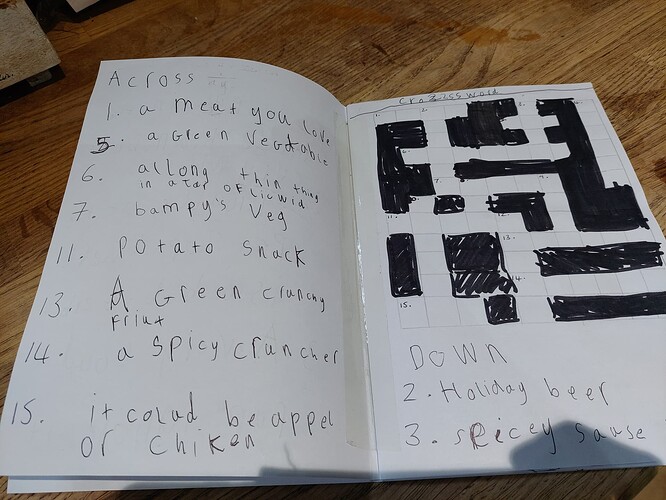 Across
1. a meat you love
5. a Green Vegatable
6. a Long thin thing
in a tap of licwid
7. bampy's Veg
11. Potato snack
13. A Green crunchy
friut
14. a spicy cruncher
15. it colud be appel
or chiken
Crossword
1. 2. 3.
7.
11.
13.
14.
15.
DOWN
2. Holiday beer
3. spicey sause